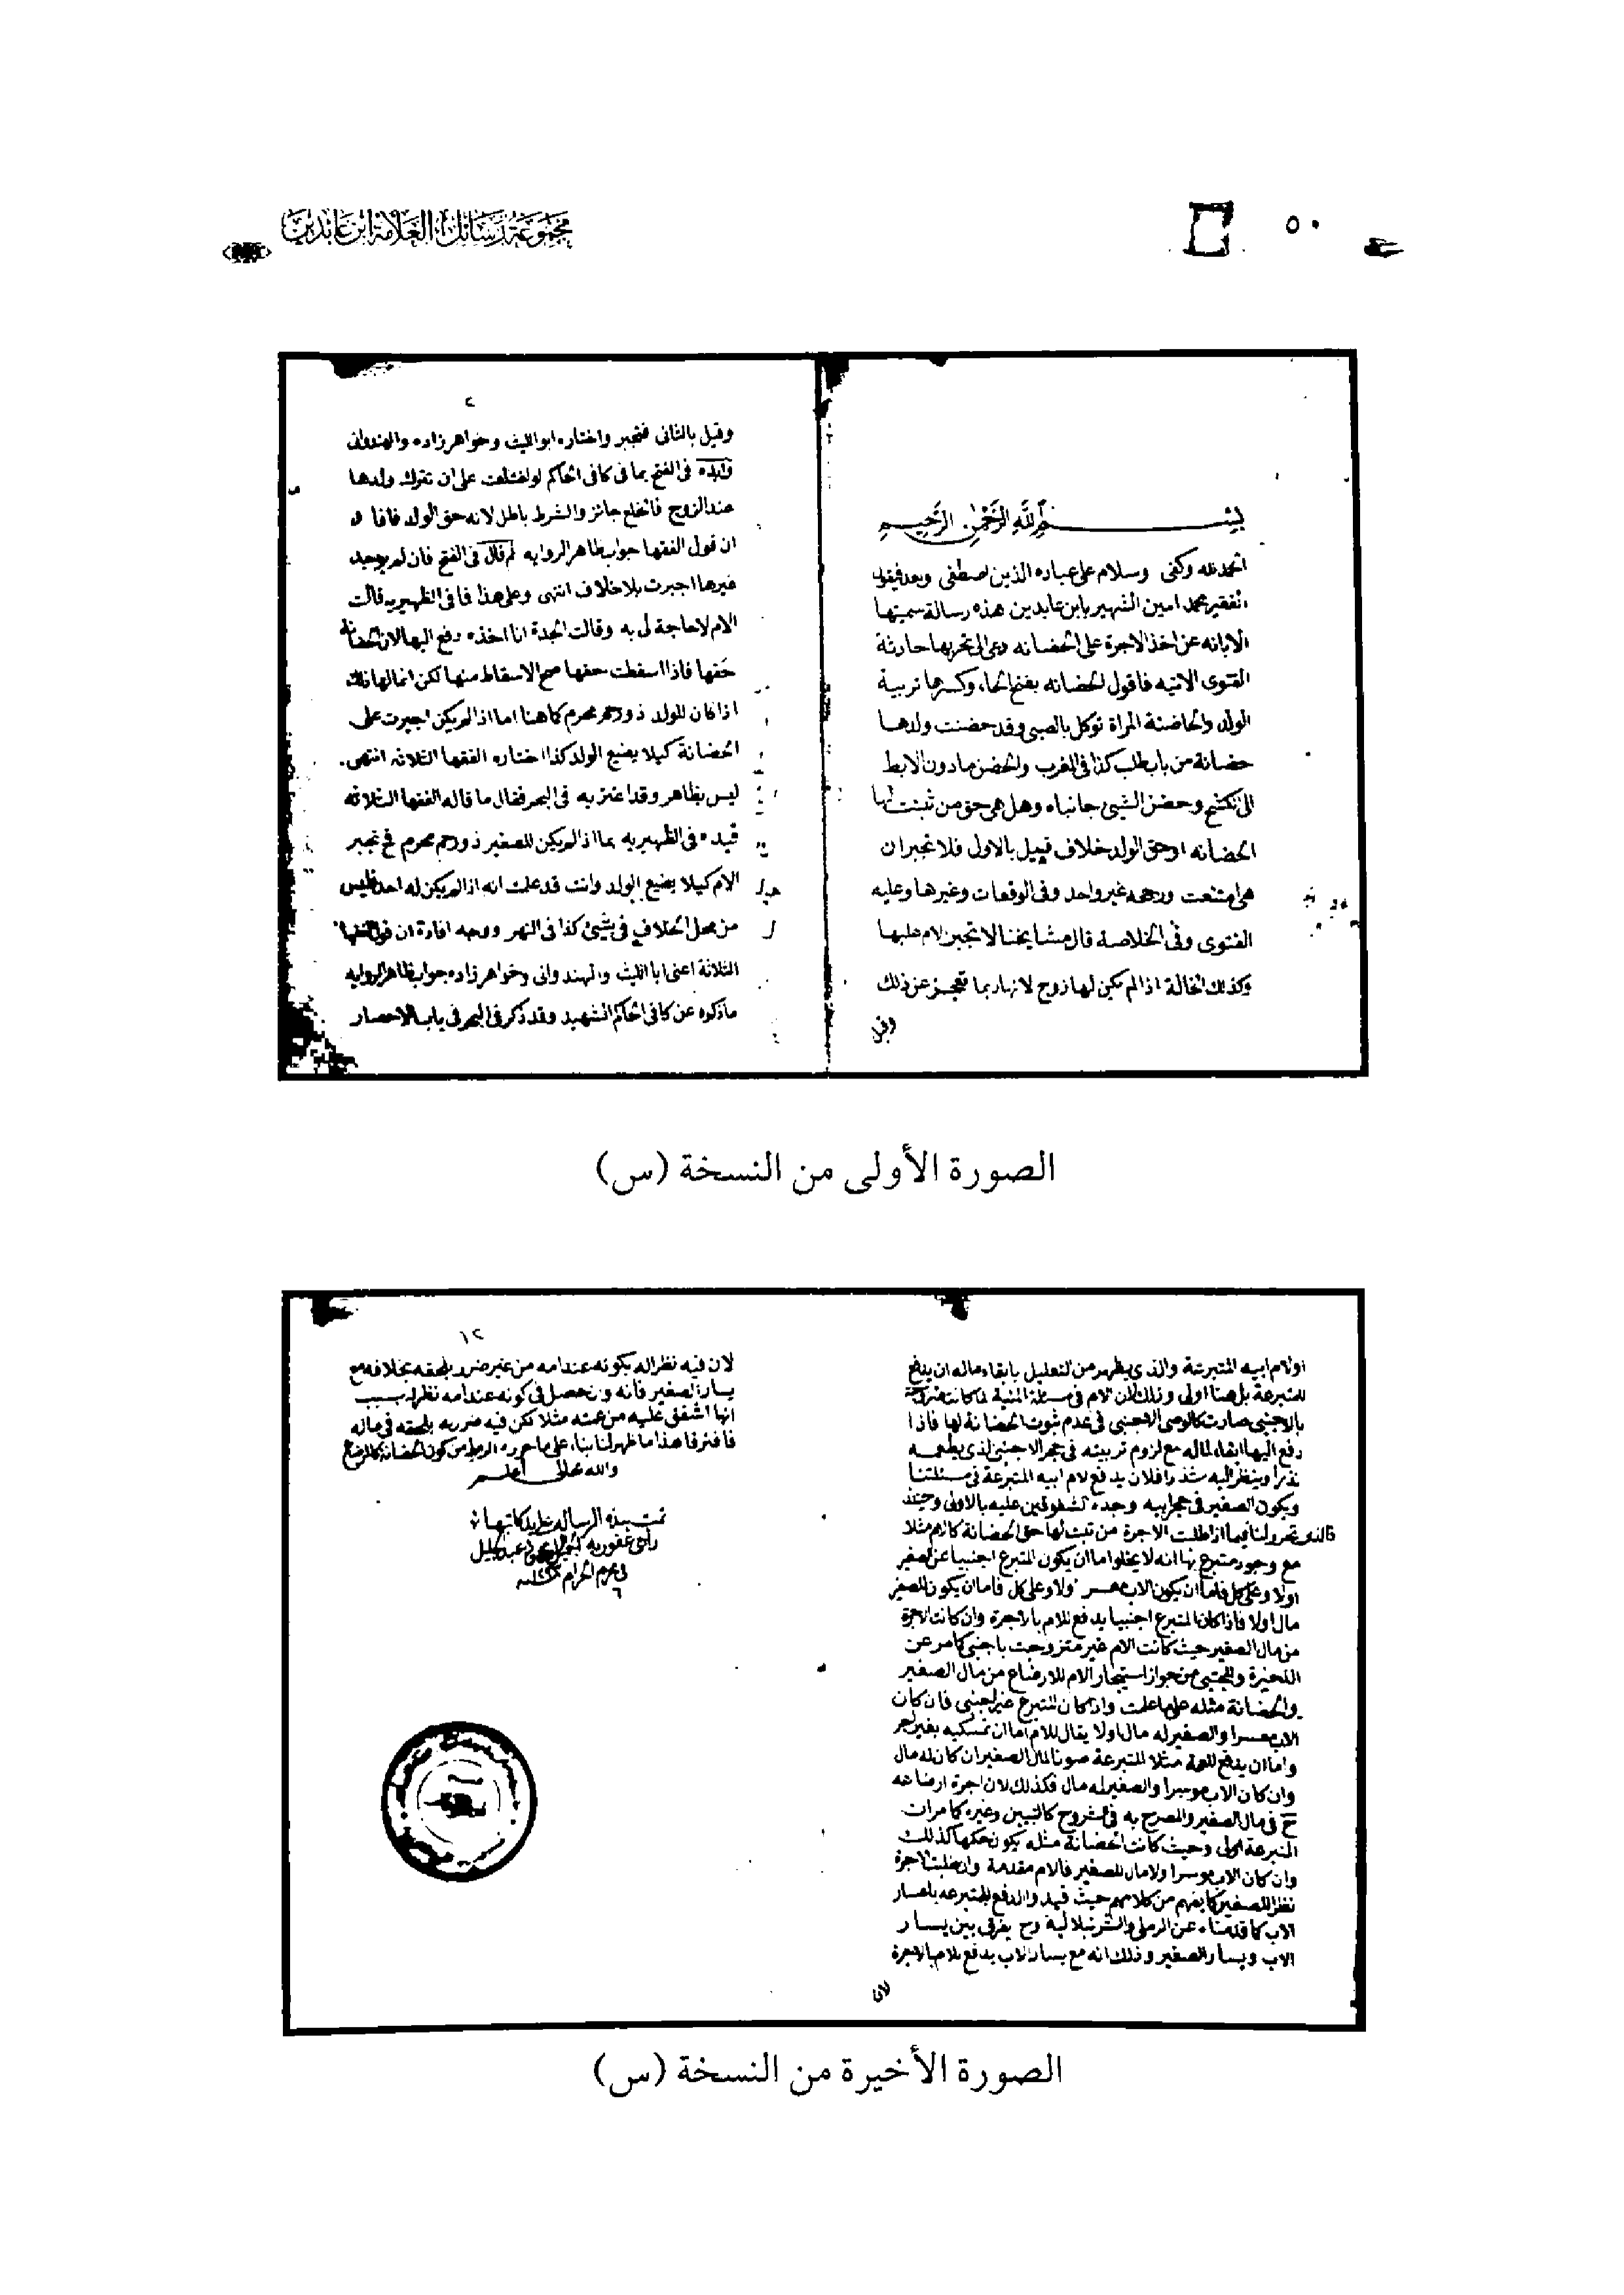 ٥٠
مجموعة رسائل العلامة ابن عابدين
بسم الله الرحمن الرحيم
الحمد لله وكفى وسلام على عباده الذين اصطفى وبعد فيقول
الفقير محمد امين الشهير بابن عابدين هذه رسالة سميتها
الابانه عن اخذ الاجرة على الحضانه دعى الى تحريرها حادثة
الفتوى الاتيه فاقول الحضانه بفتح الحاء وكسرها تربية
الولد والحاضنة المراة توكل بالصبى وقد حضنت ولدها
حضانة من باب طلب كذا فى المغرب والحضن مادون الابط
الى الكشح وحضن الشيئ جانباه وهل هى حق من ثبتت لها
الحضانه او حق الولد خلاف قيل بالاول فلا تجبر ان
هى امتنعت ورجحه غير واحد وفى الواقعات وغيرها وعليه
الفتوى وفى الخلاصة قال مشايخنا لا تجبر الام عليها
وكذلك الخالة اذا لم يكن لها زوج لانها ربما تعجز عن ذلك
وقيل
٢
وقيل بالثانى فتجبر واختاره ابو الليث وخواهر زاده والهندوانى
وايده فى الفتح بما فى كافى الحاكم لو اختلعت على ان تترك ولدها
عند الزوج فالخلع جائز والشرط باطل لانه حق الولد فافاد
ان قول الفقها جواب ظاهر الروايه ثم قال فى الفتح فان لم يوجد
غيرها اجبرت بلا خلاف انتهى وعلى هذا فما فى الظهيريه قالت
الام لا حاجة لى به وقالت الجدة انا اخذه دفع اليها لان الحضانه
حقها فاذا اسقطت حقها صح الاسقاط منها لكن انما لها ذلك
اذا كان للولد ذو رحم محرم كما هنا اما اذا لم يكن اجبرت على
الحضانة كيلا يضيع الولد كذا اختاره الفقها الثلاثه انتهى.
ليس بظاهر وقد اغتر به فى البحر فقال ما قاله الفقها الثلاثه
قيده فى الظهيريه بما اذا لم يكن للصغير ذو رحم محرم فح تجبر
الام كيلا يضيع الولد وانت قد علمت انه اذا لم يكن له احد فليس
من محل الخلاف فى شيئ كذا فى النهر ووجه افادة ان قول الفقها
الثلاثة اعنى ابا الليث والهندوانى وخواهر زاده جواب ظاهر الروايه
ماذكره عن كافى الحاكم الشهيد وقد ذكر فى البحر فى باب الاحصار
الصورة الأولى من النسخة (س)
او لام ابيه المتبرعة والذى يظهر من التعليل بابقاء ماله ان يدفع
للمتبرعة بل هنا اولى وذلك لان الام فى مسئلة المنية لما كانت
بالاجنبى صارت كالوصى الاجنبى فى عدم ثبوت الحضانة لها فاذا
دفع اليها ابقاء لماله مع لزوم تربيته فى حجر الاجنبى الذى يطعمه
نذرا وينظر اليه شذرا فلان يدفع لام ابيه المتبرعة فى مسئلتنا
ويكون الصغير فى حجر ابيه وجدته الشفوقين عليه بالاولى وحينئذ
فالذى تحرر لنا فيما اذا طلبت الاجرة من ثبت لها حق الحضانة كالام مثلا
مع وجود متبرع بها انه لا يخلو اما ان يكون المتبرع اجنبيا عن الصغير
او لا وعلى كل فاما ان يكون الاب معسر اولا وعلى كل فاما ان يكون للصغير
مال اولا فاذا كان المتبرع اجنبيا يدفع للام بالاجرة وان كانت الاجرة
من مال الصغير حيث كانت الام غير متزوجت باجنبى كما مر عن
الذخيرة والمجتبى من جواز استيجار الام للارضاع من مال الصغير
والحضانة مثله على ما علمت واذا كان المتبرع غير اجنبى فان كان
الاب معسرا والصغير له مال اولا يقال للام اما ان تمسكيه بغير اجر
واما ان يدفع للعمة مثلا المتبرعة صونا لمال الصغير ان كان له مال
وان كان الاب موسرا والصغير له مال فكذلك لان اجرة ارضاعه
ح فى مال الصغير والمصرح به فى الشروح كالتبيين وغيره كما مر ان
المتبرعة اولى وحيث كانت الحضانة مثله يكون حكمها كذلك
وان كان الاب موسرا ولا مال للصغير فالام مقدمة وان طلبت الاجرة
نظرا للصغير كما يفهم من كلامهم حيث قيدوا الدفع للمتبرعه باعسار
الاب كما قدمناه عن الرملى والشرنبلالية وح يفرق بين يسار
الاب ويسار الصغير وذلك انه مع يسار الاب يدفع للام بالاجرة
لان
١٢
لان فيه نظرا له بكونه عند امه من غير ضرر يلحقه بخلافه مع
يسار الصغير فانه وان حصل فى كونه عند امه نظر له بسبب
انها اشفق عليه من عمته مثلا لكن فيه ضرر به يلحقه فى ماله
فافترقا هذا ما ظهر لنا بناء على ما حرره الرملى من كون الحضانة كالرضاع
والله تعالى اعلم
تمت هذه الرسالة على يد كاتبها
راجى عفو ربه
فى محرم الحرام
الصورة الأخيرة من النسخة (س)